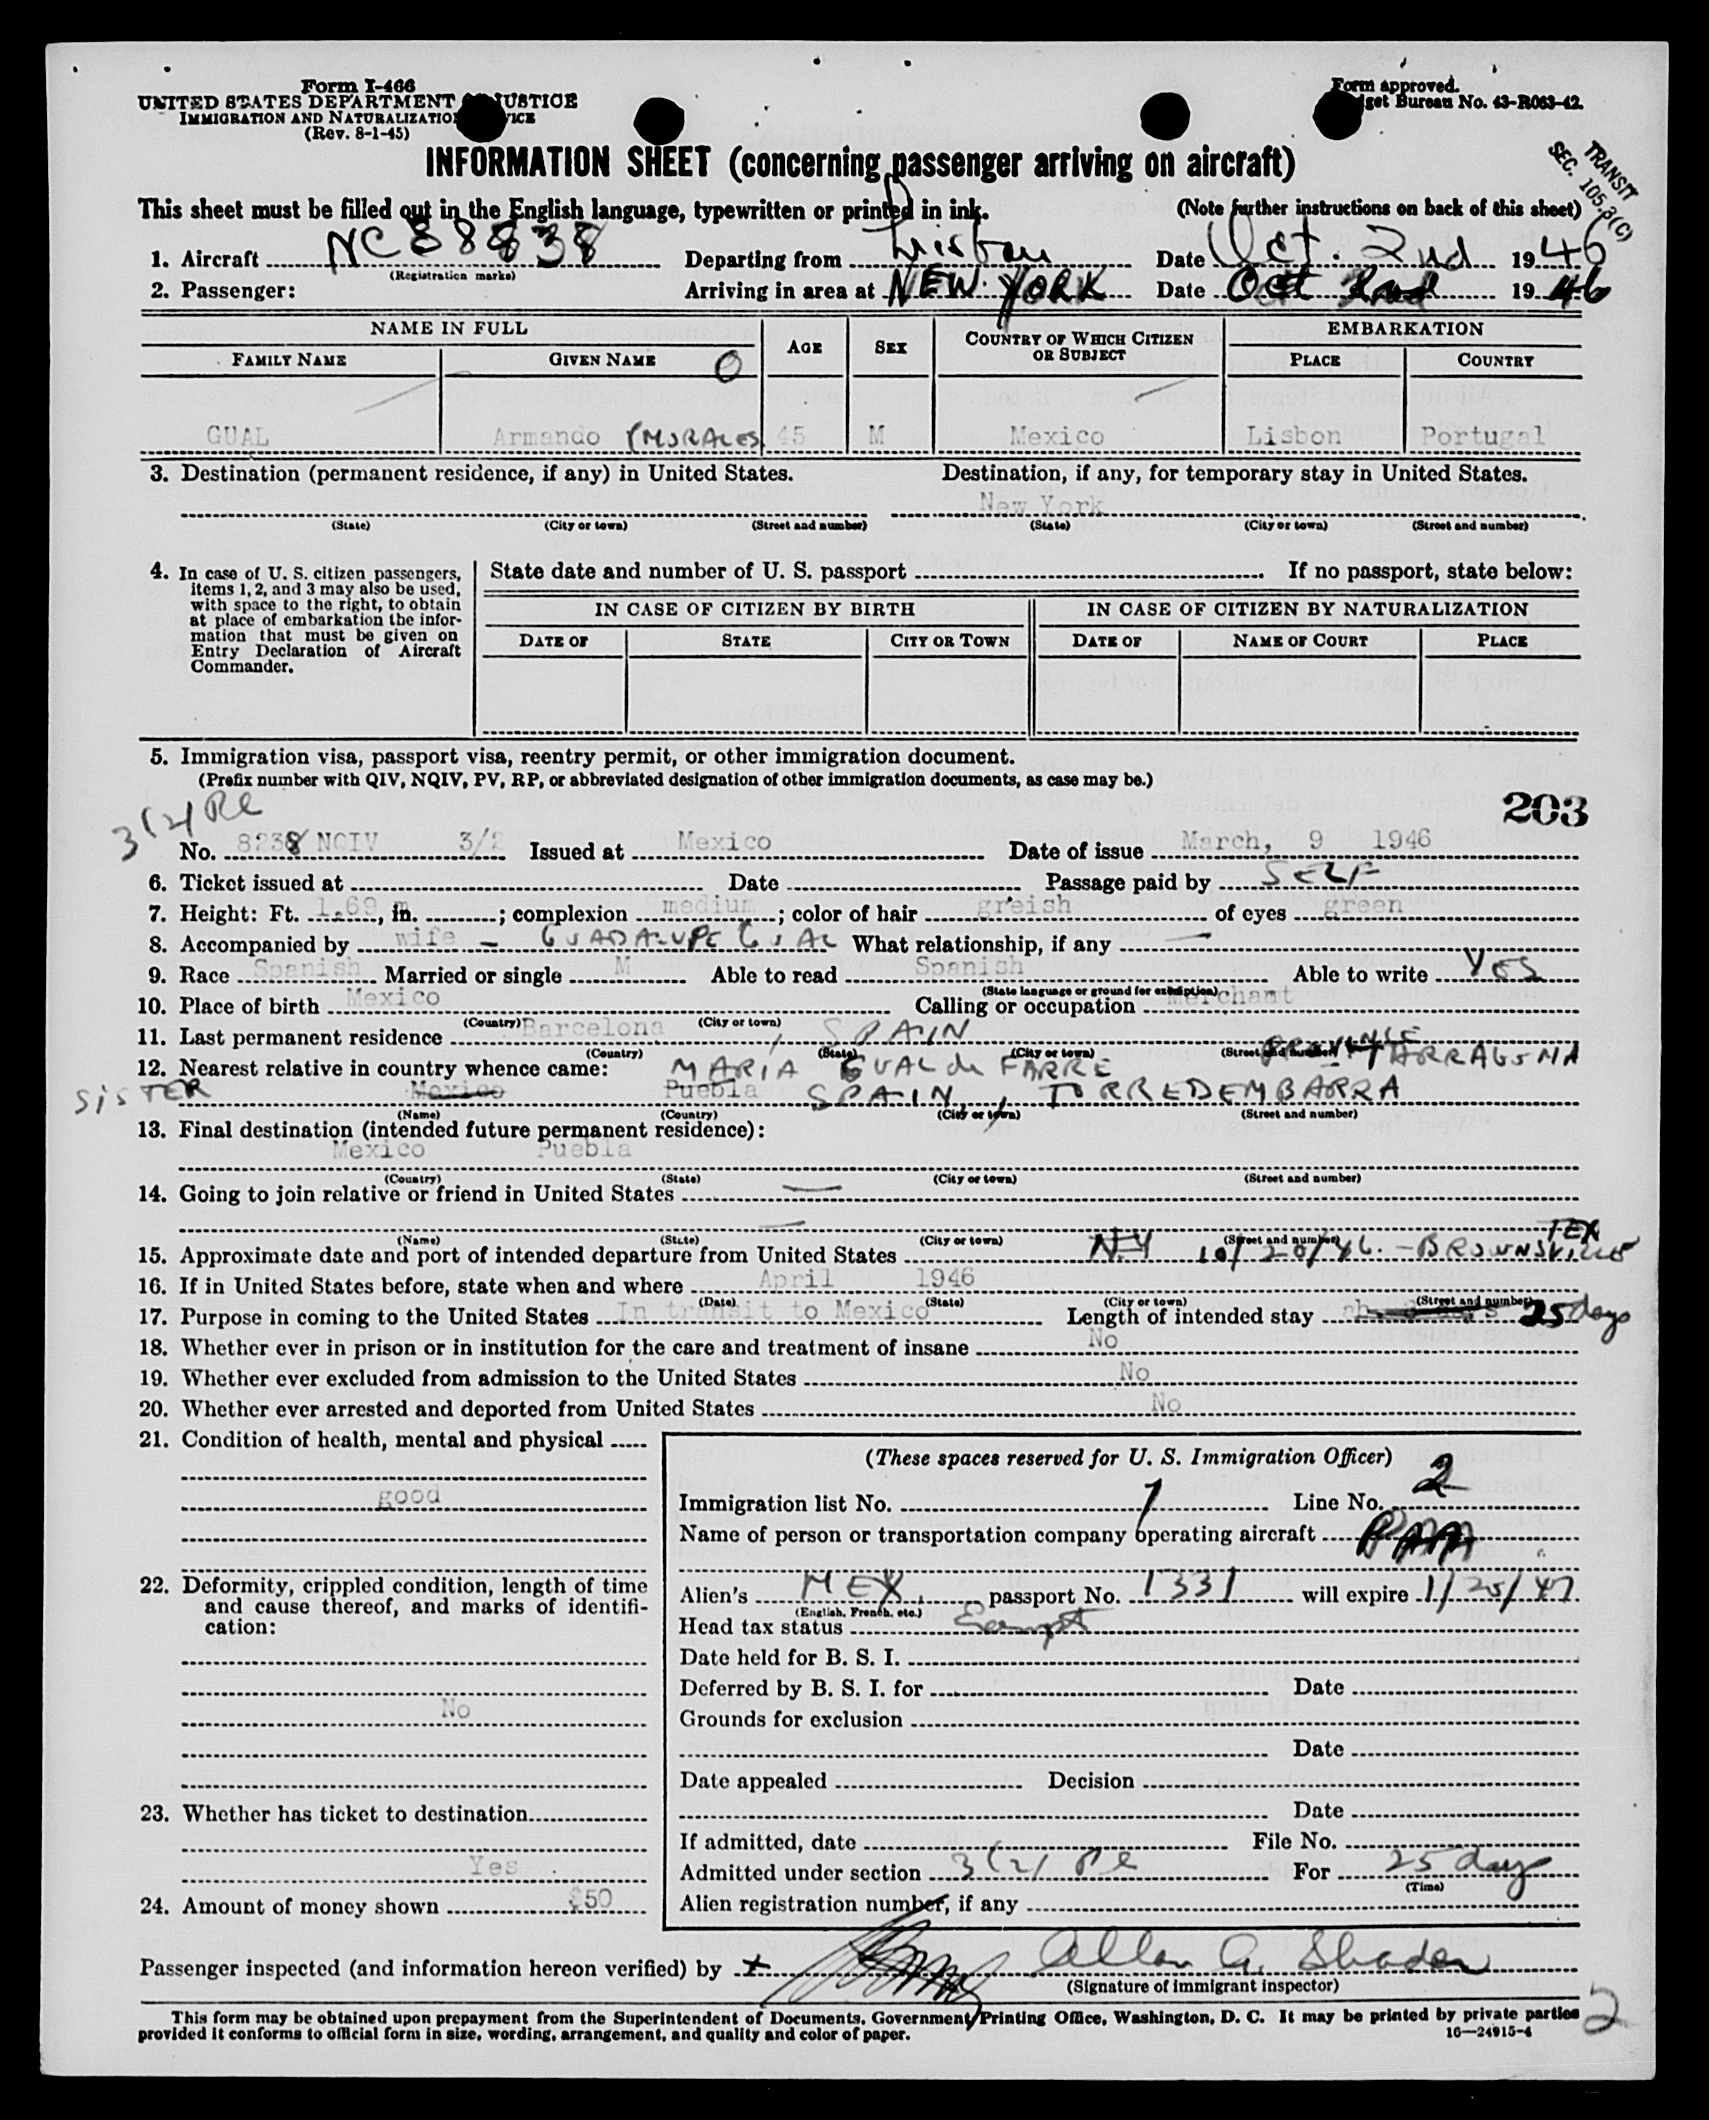 Form I-466
UNITED STATES DEPARTMENT JUSTICE
IMMIGRATION AND NATURALIZATION
(Rev. 8-1-45)
Form approved.
Budget Bureau No. 43-R063-42.
TRANSIT
SEC. 105.3(C)
INFORMATION SHEET (concerning passenger arriving on aircraft)
This sheet must be filled out in the English language, typewritten or printed in ink. (Note further instructions on back of this sheet)
1. Aircraft NC 88838 Departing from Lisbon Date Oct. 2nd 1946
(Registration marks)
2. Passenger: Arriving in area at NEW YORK Date Oct 2nd 1946
NAME IN FULL AGE SEX COUNTRY OF WHICH CITIZEN OR SUBJECT EMBARKATION
FAMILY NAME GIVEN NAME PLACE COUNTRY
GUAL Armando (MORALES) 45 M Mexico Lisbon Portugal
3. Destination (permanent residence, if any) in United States. Destination, if any, for temporary stay in United States.
New York
(State) (City or town) (Street and number) (State) (City or town) (Street and number)
4. In case of U. S. citizen passengers, items 1, 2, and 3 may also be used, with space to the right, to obtain at place of embarkation the information that must be given on Entry Declaration of Aircraft Commander.
State date and number of U. S. passport If no passport, state below:
IN CASE OF CITIZEN BY BIRTH IN CASE OF CITIZEN BY NATURALIZATION
DATE OF STATE CITY OR TOWN DATE OF NAME OF COURT PLACE
5. Immigration visa, passport visa, reentry permit, or other immigration document.
(Prefix number with QIV, NQIV, PV, RP, or abbreviated designation of other immigration documents, as case may be.)
203
3(2) Pl
No. 8238 NCIV 3/2 Issued at Mexico Date of issue March, 9 1946
6. Ticket issued at Date Passage paid by SELF
7. Height: Ft. 1.69 m, in. ; complexion medium ; color of hair greish of eyes green
8. Accompanied by wife - GUADALUPE GUAL What relationship, if any —
9. Race Spanish Married or single M Able to read Spanish Able to write YES
(State language or ground for exemption)
10. Place of birth Mexico Calling or occupation Merchant
(Country) (City or town)
11. Last permanent residence Barcelona, SPAIN
(Country) (State) (City or town) (Street and number)
PROVINCE TARRAGONA
12. Nearest relative in country whence came: MARIA GUAL de FARRE
SISTER Mexico Puebla SPAIN, TORREDEMBARRA
(Name) (Country) (City or town) (Street and number)
13. Final destination (intended future permanent residence):
Mexico Puebla
(Country) (State) (City or town) (Street and number)
14. Going to join relative or friend in United States —
—
(Name) (State) (City or town) (Street and number)
15. Approximate date and port of intended departure from United States NY 10/20/46. - BROWNSVILLE TEX
16. If in United States before, state when and where April 1946
(Date) (State) (City or town) (Street and number)
17. Purpose in coming to the United States In transit to Mexico Length of intended stay 25 days
18. Whether ever in prison or in institution for the care and treatment of insane No
19. Whether ever excluded from admission to the United States No
20. Whether ever arrested and deported from United States No
21. Condition of health, mental and physical
good
22. Deformity, crippled condition, length of time and cause thereof, and marks of identification:
No
23. Whether has ticket to destination
Yes
24. Amount of money shown $50
(These spaces reserved for U. S. Immigration Officer)
Immigration list No. 1 Line No. 2
Name of person or transportation company operating aircraft PAA
Alien's MEX. passport No. 1331 will expire 1/25/47.
(English, French, etc.)
Head tax status Exempt
Date held for B. S. I.
Deferred by B. S. I. for Date
Grounds for exclusion
Date
Date appealed Decision
Date
If admitted, date File No.
Admitted under section 3(2) Pl For 25 days
(Time)
Alien registration number, if any
Passenger inspected (and information hereon verified) by x Allan G. Shader
(Signature of immigrant inspector)
This form may be obtained upon prepayment from the Superintendent of Documents, Government Printing Office, Washington, D. C. It may be printed by private parties
provided it conforms to official form in size, wording, arrangement, and quality and color of paper. 16—24915-4
2